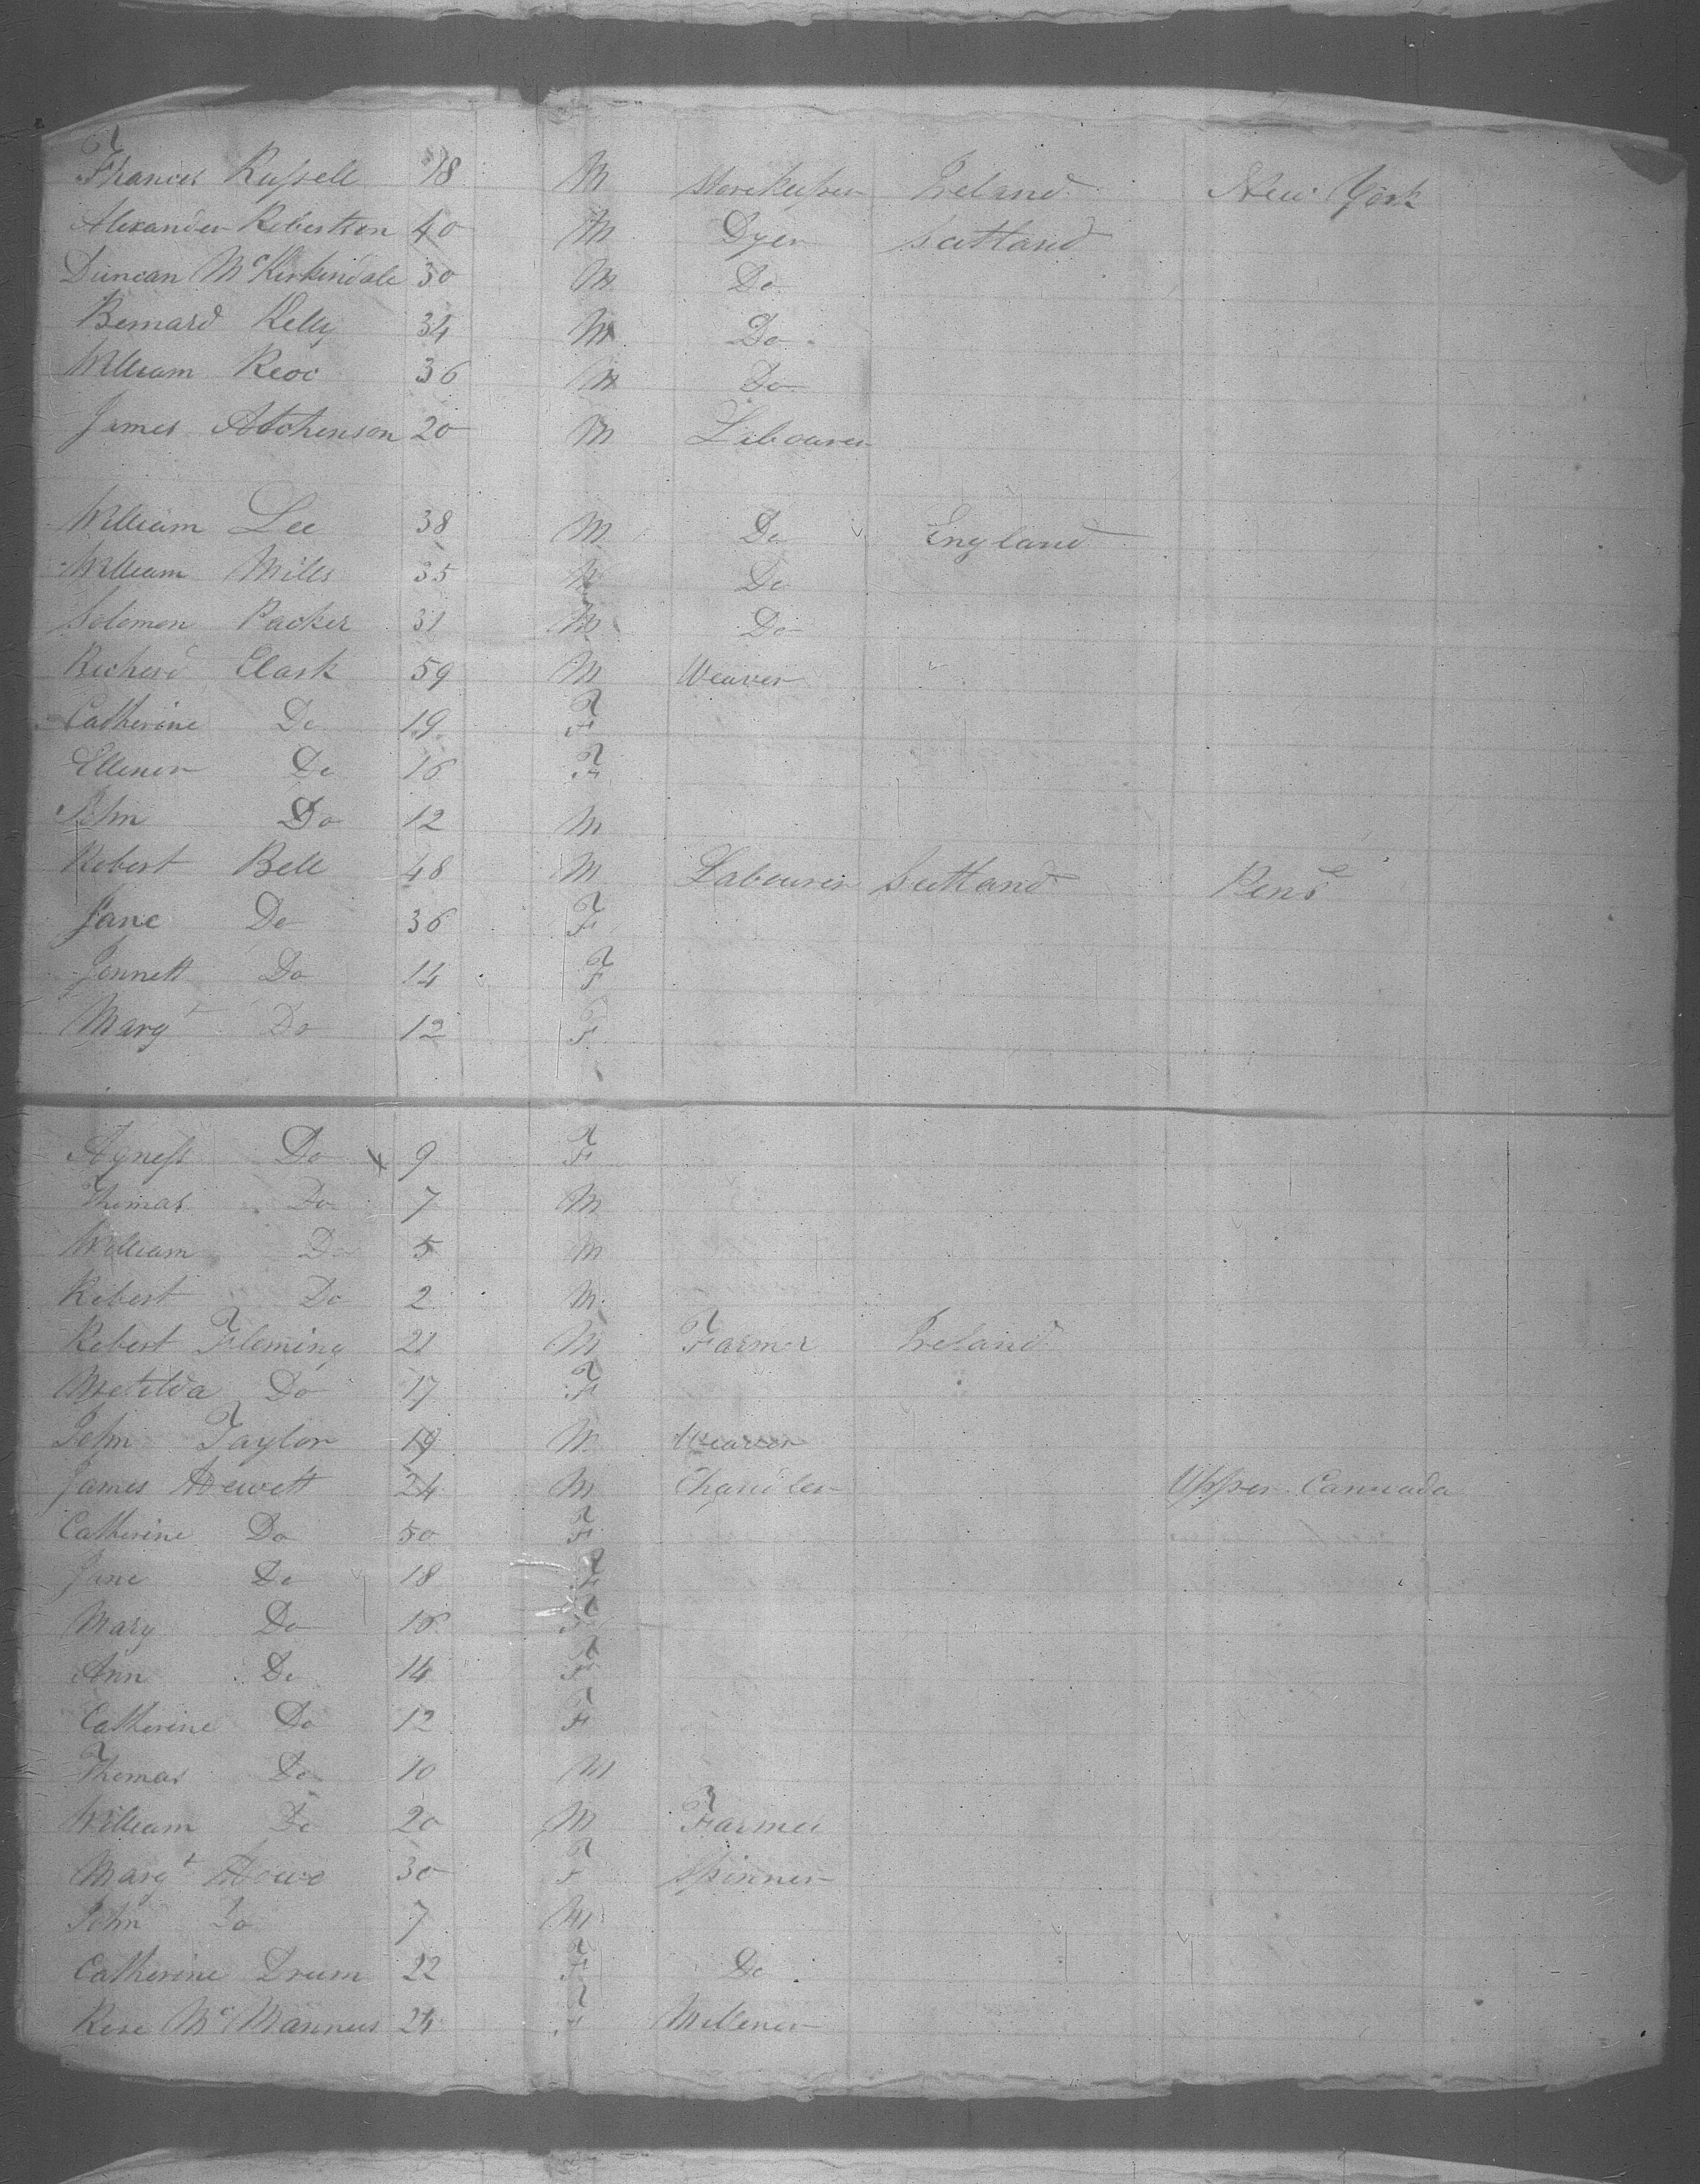 Frances Russell 18 M Storekeeper Ireland New York
Alexander Robertson 40 M Dyer Scotland
Duncan McKirkindale 30 M Do
Bernard Kelly 34 M Do
William Reoc 36 M Do
James Atchenson 20 M Labourer
William Lee 38 M Do England
William Mills 35 M Do
Solomon Packer 31 M Do
Richerd Clark 59 M Weaver
Catherine Do 19 F
Ellener Do 16 F
John Do 12 M
Robert Bell 48 M Labourer Scotland
Jane Do 36 F
Jennett Do 14 F
Margt Do 12 F
Agness Do 9 F
Thomas Do 7 M
William Do 5 M
Robert Do 2 M
Robert Fleming 21 M Farmer Ireland
Matilda Do 17 F
John Taylor 19 M Weaver
James Hewett 24 M Chandler Upper Cannada
Catherine Do 50 F
Jane Do 18 F
Mary Do 16 F
Ann Do 14 F
Catherine Do 12 F
Thomas Do 10 M
William Do 20 M Farmer
Margt Howe 30 F Spinner
John Do 7 M
Catherine Drum 22 F Do
Rose McMannus 24 F Millener